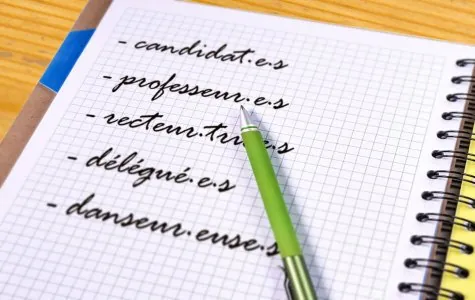 - candidat.e.s
- professeur.e.s
- recteur.trice.s
- délégué.e.s
- danseur.euse.s